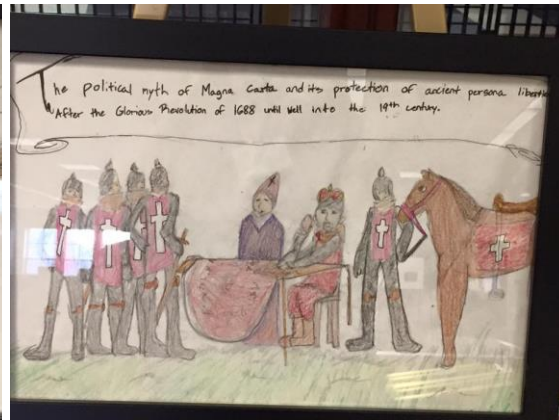 The political myth of Magna Carta and its protection of ancient persona liberti
After the Glorious Revolution of 1688 until well into the 19th century.